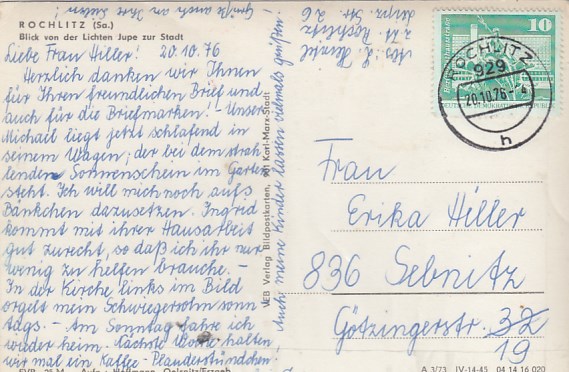 ROCHLITZ (Sa.)
Blick von der Lichten Jupe zur Stadt
Liebe Frau Hiller! 20.10.76
Herzlich danken wir Ihnen
für Ihren freundlichen Brief und
auch für die Briefmarken! – Unser
Michael liegt jetzt schlafend in
seinem Wagen, der bei dem strah
lenden Sonnenschein im Garten
steht. Ich will mich noch aufs
Bänkchen dazusetzen. Ingrid
kommt mit ihrer Hausarbeit
gut zurecht, so daß ich ihr nur
wenig zu helfen brauche. –
In der Kirche links im Bild
orgelt mein Schwiegersohn sonn
tags. – Am Sonntag fahre ich
wieder heim. Nächste Woche halten
wir mal ein Kaffee-Plauderstündchen!
Auch meine Kinder lassen vielmals grüßen!
Grüße auch an Ihre
Abs.
z.Zt. Rochlitz
Str. 26
VEB Verlag Bildpostkarten, 901 Karl-Marx-Stadt
10
DEUTSCHE DEMOKRATISCHE REPUBLIK
ROCHLITZ
929
20.10.76
h
Frau
Erika Hiller
836 Sebnitz
Götzingerstr. 32
19
A 3/73 IV-14-45 04 14 16 020